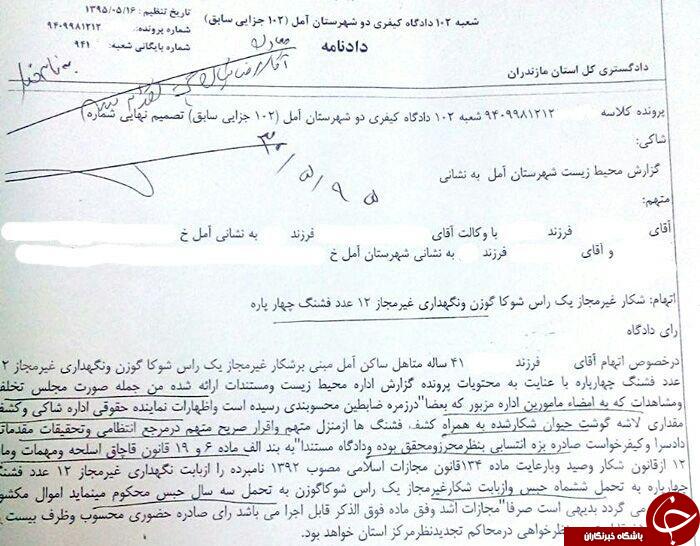 تاریخ تنظیم : ۱۳۹۵/۰۵/۱۶
شعبه ۱۰۲ دادگاه کیفری دو شهرستان آمل (۱۰۲ جزایی سابق)
شماره پرونده: ۹۴۰۹۹۸۱۲۱۲
شماره بایگانی شعبه: ۹۴۱
دادنامه
دادگستری کل استان مازندران
پرونده کلاسه ۹۴۰۹۹۸۱۲۱۲ شعبه ۱۰۲ دادگاه کیفری دو شهرستان آمل (۱۰۲ جزایی سابق) تصمیم نهایی شماره
شاکی:
گزارش محیط زیست شهرستان آمل به نشانی
متهم:
آقای فرزند با وکالت آقای فرزند به نشانی آمل خ
و آقای فرزند به نشانی شهرستان آمل خ
اتهام: شکار غیرمجاز یک راس شوکا گوزن ونگهداری غیرمجاز ۱۲ عدد فشنگ چهار پاره
رای دادگاه
درخصوص اتهام آقای فرزند ۴۱ ساله متاهل ساکن آمل مبنی برشکار غیرمجاز یک راس شوکا گوزن ونگهداری غیرمجاز ۲
عدد فشنگ چهارپاره با عنایت به محتویات پرونده گزارش اداره محیط زیست ومستندات ارائه شده من جمله صورت مجلس تخلف
ومشاهدات که به امضاء مامورین اداره مزبور که بعضا"درزمره ضابطین محسوبندی رسیده است واظهارات نماینده حقوقی اداره شاکی وکشف
مقداری لاشه گوشت حیوان شکارشده به همراه کشف فشنگ ها ازمنزل متهم واقرار صریح متهم درمرجع انتظامی وتحقیقات مقدماتی
دادسرا وکیفرخواست صادره بزه انتسابی بنظرمحرزومحقق بوده ودادگاه مستندا"به بند الف ماده ۶ و ۱۹ قانون قاچاق اسلحه ومهمات وماد
۱۲ ازقانون شکار وصید وبارعایت ماده ۱۳۴قانون مجازات اسلامی مصوب ۱۳۹۲ نامبرده را ازبابت نگهداری غیرمجاز ۱۲ عدد فشنگ
چهارپاره به تحمل ششماه حبس وازبابت شکارغیرمجاز یک راس شوکاگوزن به تحمل سه سال حبس محکوم مینماید اموال مکشو
می گردد بدیهی است صرفا"مجازات اشد وفق ماده فوق الذکر قابل اجرا می باشد رای صادره حضوری محسوب وظرف بیست
نظرخواهی درمحاکم تجدیدنظرمرکز استان خواهد بود.
باشگاه خبرنگاران